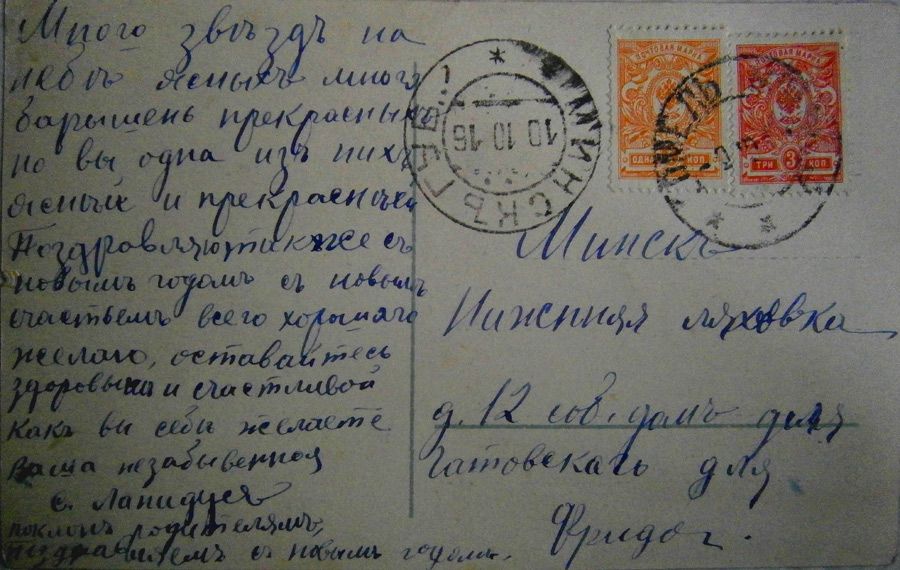 Много звѣздъ на
небѣ ясныхъ много
барышень прекрасныхъ
но вы одна изъ нихъ
ясный и прекрасный
Поздравляю также съ
новымъ годомъ съ новымъ
счастьемъ всего хорошаго
желаю, оставайтесь
здоровы и счастливой
какъ ви себы желаете
Ваша незабывенная
с. Лапидуся
поклонъ родителямъ,
съ новымъ годомъ.
МИНСКЪ ГУБ.
10 10 16
ПОЧТОВАЯ МАРКА
ОДНА КОП.
ПОЧТОВАЯ МАРКА
ТРИ 3 КОП.
Минскъ
Нижнняя ляховка
д. 12 соб. домъ для
гатовскаго для
Фридог.